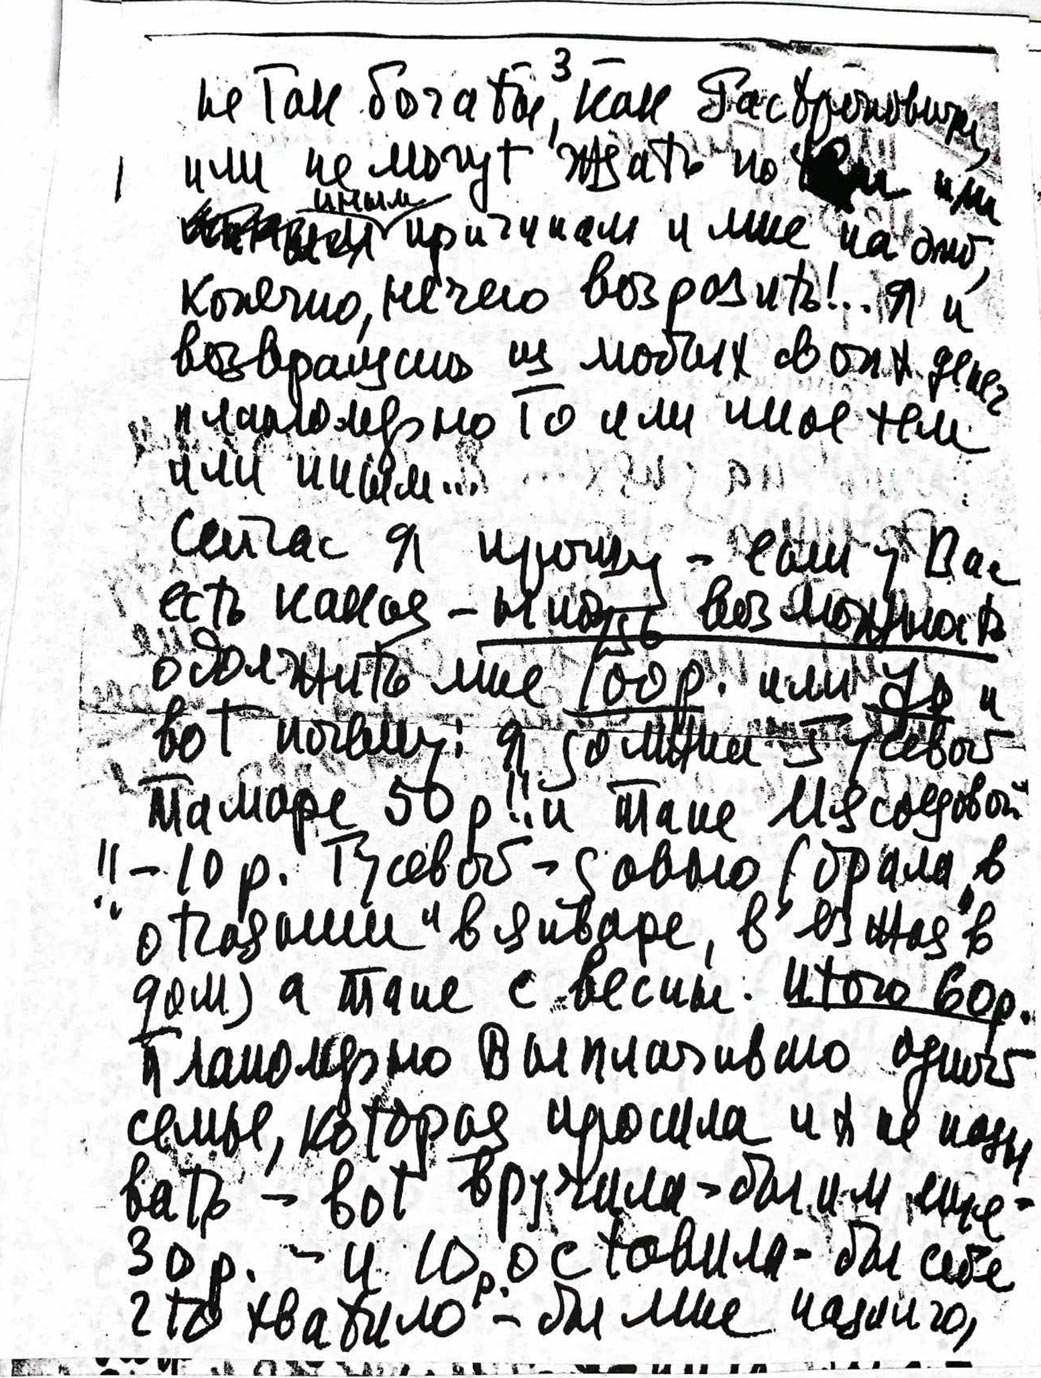 3
не так богаты, как Растроповичи,
или не могут ждать по или
иным причинам и мне на это,
конечно, нечего возразить!.. Я и
возвращаю из любых своих денег
планомерно то или иное тем
или иным...
Сейчас я прошу – если у Вас
есть какая-нибудь возможность
одолжить мне 100 р. или и
вот почему: я должна Гусевой
Тамаре 50 р!! и Тане Мясоедовой
!! – 10 р. Гусевой – давно (брала, в
"отчаяньи" в январе, въезжая в
дом) а Тане с весны. Итого 60 р.
Планомерно выплачиваю одной
семье, которая просила их не назы
вать – вот вручила-бы им еще-
30 р. – и 10 р. оставила-бы себе
что хватило-бы мне надолго,